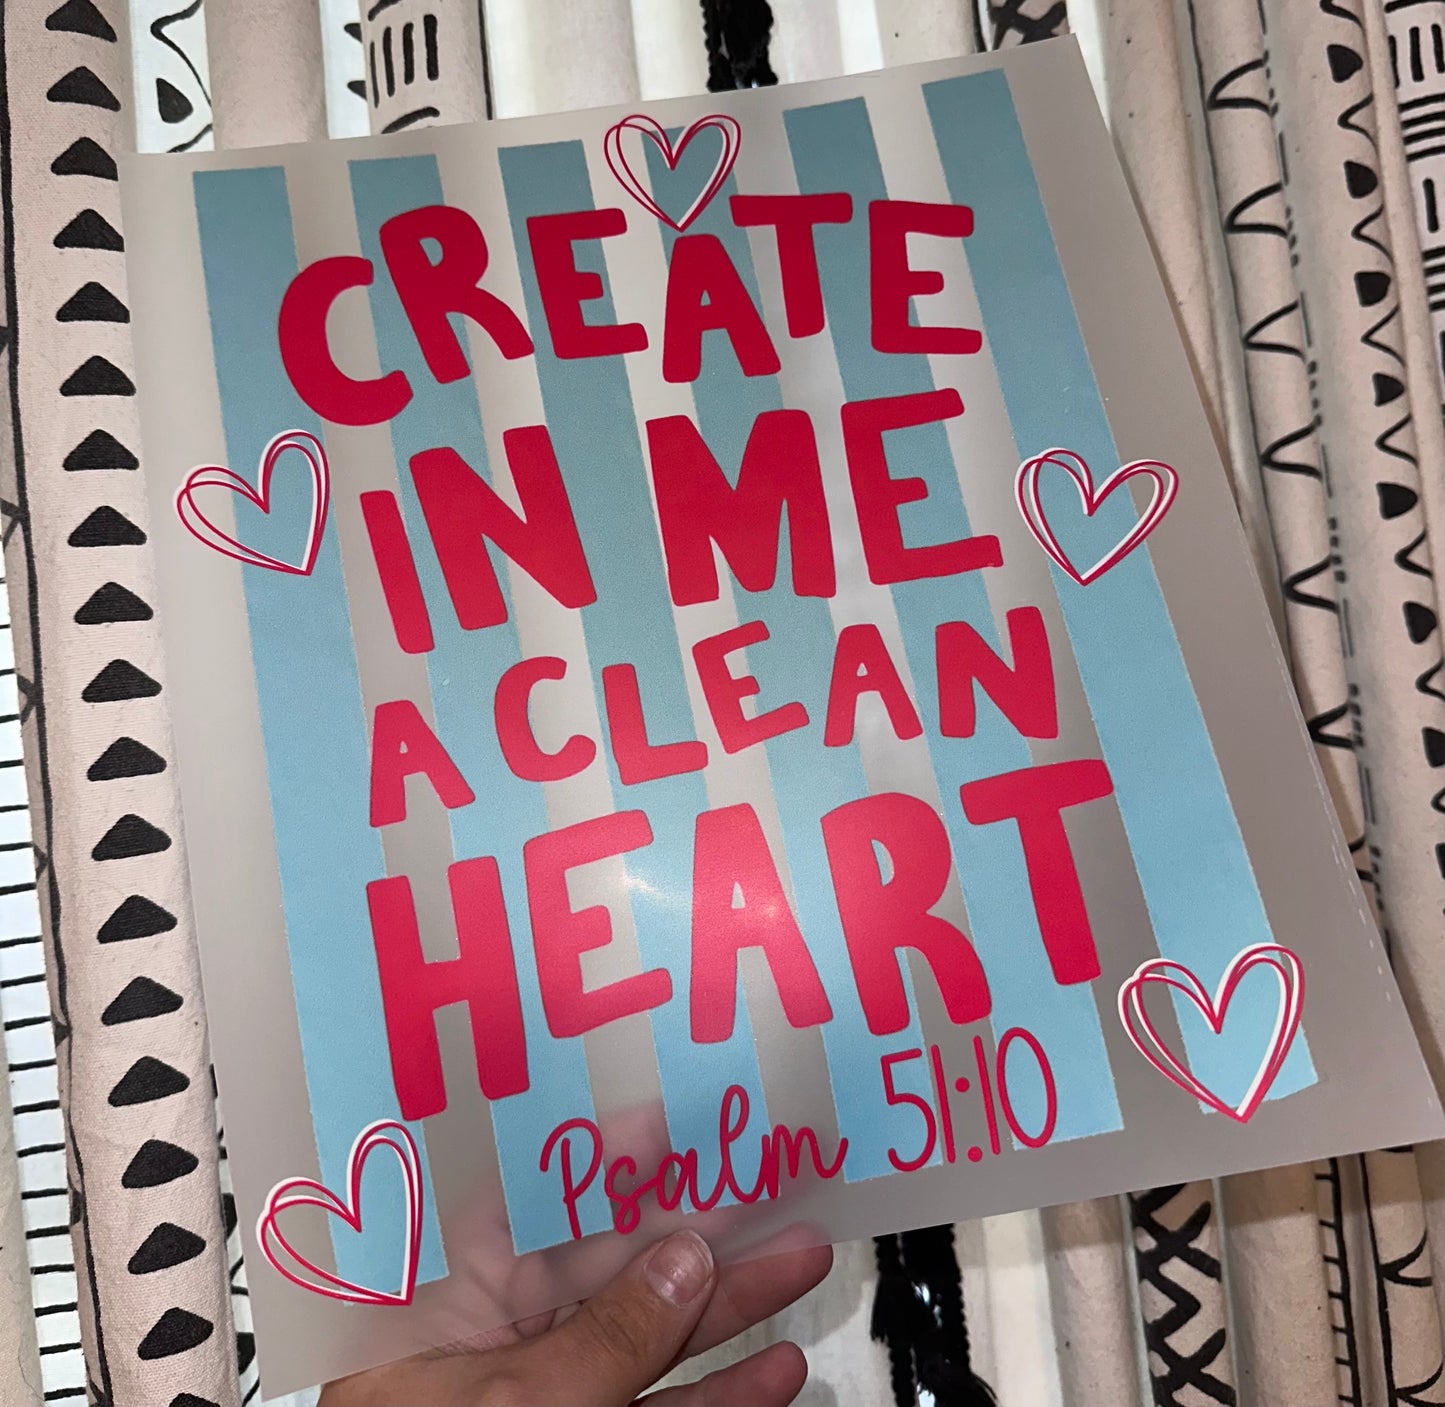 CREATE
IN ME
A CLEAN
HEART
Psalm 51:10